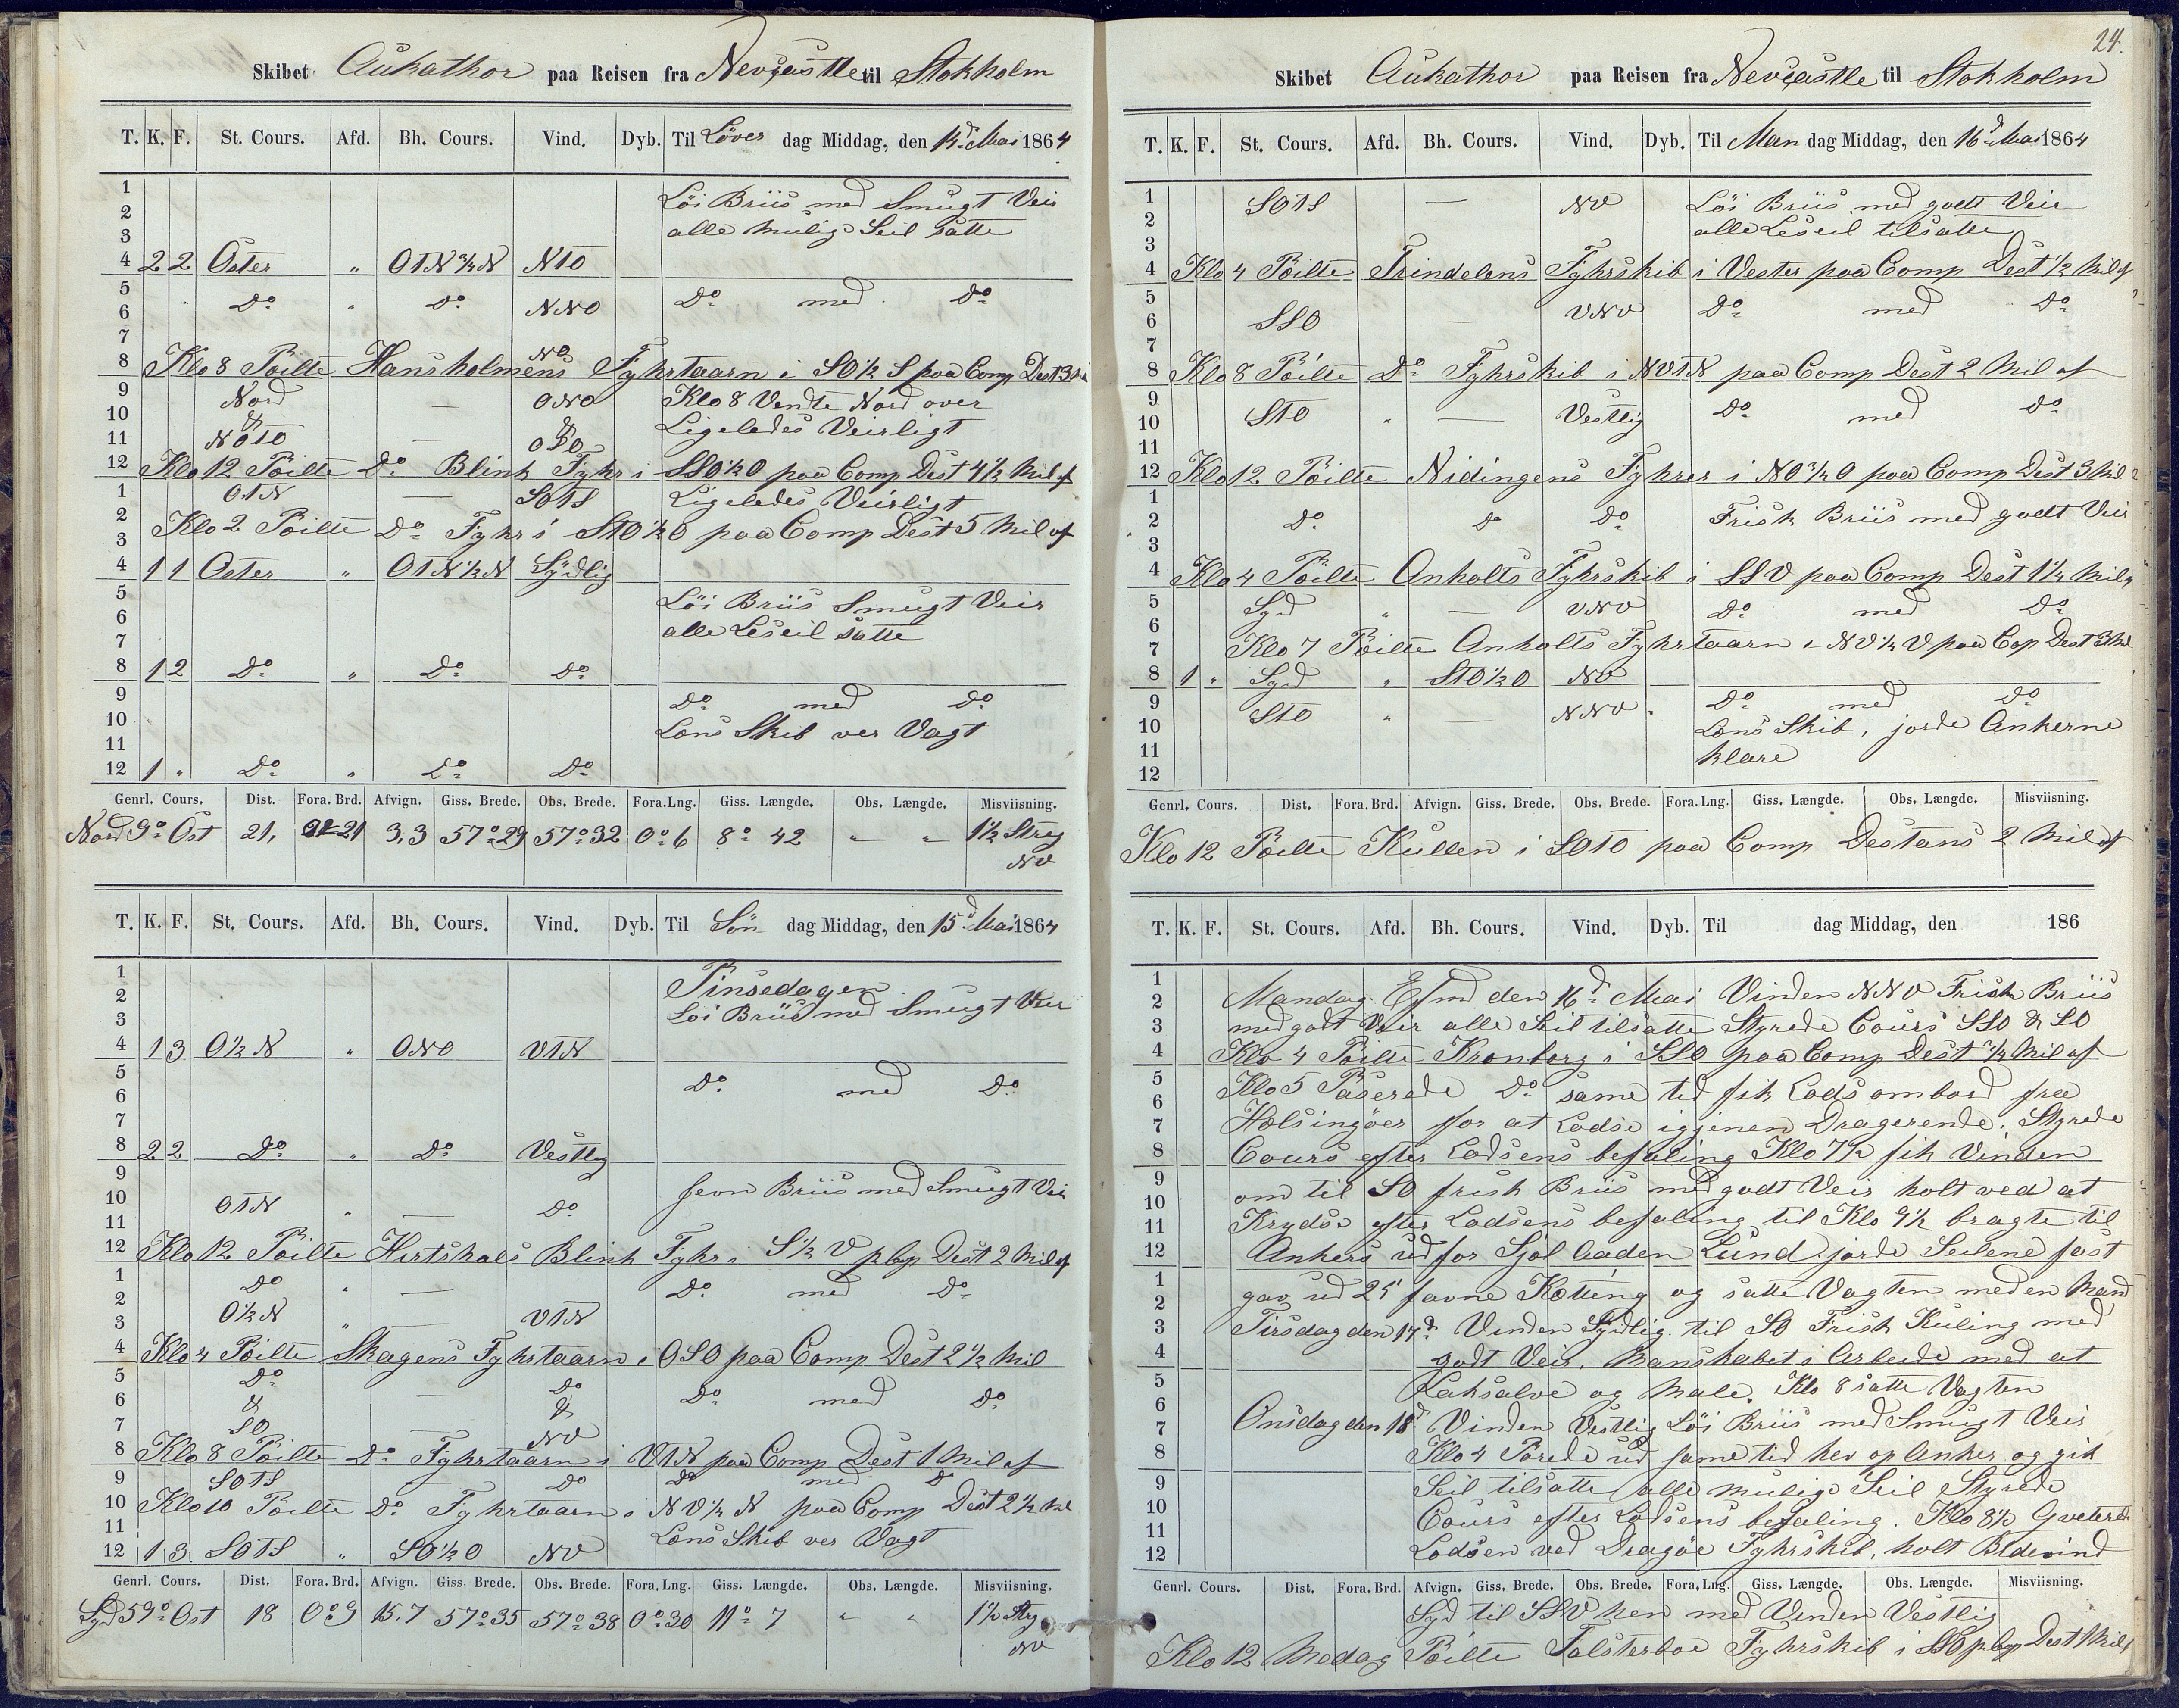 Skibet Aukathor paa Reisen fra Nevcastle til Stokholm
T. K. F. St. Cours. Afd. Bh. Cours. Vind. Dyb. Til Löver dag Middag, den 14d Mai 1864
1 Löi Briis med Smugt Veir
2 alle mulige Seil satte
3
4 2 2 Öster " OTN 3/4 N NTO
5
6 Do " Do NNO Do med Do
7 NO
8 Klo 8 Pöilte Hansholmens Fyhrtaarn i SO 1/2 S paa Comp Dest 3
9 Nord — ONO Klo 8 Vendte Nord over
10 & & Ligeledes Veirligt
11 NOTO — OSO
12 Klo 12 Pöilte Do Blink Fyhr i SSO 1/2 O paa Comp Dest 4 1/2 Mil af
1 OTN — SOTS Ligeledes Veirligt
2 Klo 2 Pöilte Do Fyhr i STO 1/2 O paa Comp Dest 5 Mil af
3
4 1 1 Öster " OTN 1/2 N Sydlig
5 Löi Briis Smugt Veir
6 alle Leseil satte
7
8 1 2 Do " Do Do
9 Do med Do
10 Lens Skib ver Vagt
11
12 1 " Do " Do Do
Genrl. Cours. Dist. Fora. Brd. Afvign. Giss. Brede. Obs. Brede. Fora. Lng. Giss. Længde. Obs. Længde. Misviisning.
Nord 9o Ost 21, 21 3,3 57o 29 57o 32 0o 6 8o 42 " " 1 1/2 Streg
NV
T. K. F. St. Cours. Afd. Bh. Cours. Vind. Dyb. Til Sön dag Middag, den 15d Mai 1864
1 Pinsedagen
2 Löi Briis med Smugt Veir
3
4 1 3 O 1/2 N " ONO VTN
5 Do med Do
6
7
8 2 2 Do " Do Vestlig
9 Jevn Briis med Smugt Veir
10 OTN " — Do
11
12 Klo 12 Pöilte Hirtshals Blink Fyhr i S 1/2 V p Cop Dest 2 Mil af
1 Do " — Do med Do
2 O 1/2 N " VTN
3
4 Klo 4 Pöilte Skagens Fyhrtaarn i OSO paa Comp Dest 2 1/2 Mil
5 Do Do
6 & — & Do med Do
7 SO NV
8 Klo 8 Pöilte Do Fyhrtaarn i VTN paa Comp Dest 1 Mil af
9 SOTS Do Do med Do
10 Klo 10 Pöilte Do Fyhrtaarn i NV 1/2 N paa Comp Dest 2 1/2 Ml
11 Lens Skib ver Vagt
12 1 3 SOTS " SO 1/2 O NV
Genrl. Cours. Dist. Fora. Brd. Afvign. Giss. Brede. Obs. Brede. Fora. Lng. Giss. Længde. Obs. Længde. Misviisning.
Syd 59o Ost 18 0o 9 15,7 57o 35 57o 38 0o 30 11o 7 " " 1 1/2 Streg
NV
24.
Skibet Aukathor paa Reisen fra Nevcastle til Stokholm
T. K. F. St. Cours. Afd. Bh. Cours. Vind. Dyb. Til Man dag Middag, den 16d Mai 1864
1 SOTS — NV Löi Briis med godt Veir
2 alle Leseil tilsatte
3
4 Klo 4 Pöilte Trindelens Fyhrskib i Vester paa Comp Dest 1/2 Mil af
5 Do med Do
6 SSO — VNV
7
8 Klo 8 Pöilte Do Fyhrskib i NVTN paa Comp Dest 2 Mil af
9
10 STO " — Vestlig Do med Do
11
12 Klo 12 Pöilte Nidingens Fyhrer i NO 3/4 O paa Comp Dest 3 Mil
1
2 Do Do Do Frisk Briis med godt Veir
3
4 Klo 4 Pöilte Anholts Fyhrskib i SSV paa Comp Dest 1 1/4 Mil af
5 Syd " — VNV Do med Do
6
7 Klo 7 Pöilte Anholts Fyhrtaarn i NV 1/2 V paa Cop Dest 3 Ml
8 1 " Syd " STO 1/2 O NV
9 STO " — NNV Do med Do
10 Lens Skib, jorde Ankerne
11 klare
12
Genrl. Cours. Dist. Fora. Brd. Afvign. Giss. Brede. Obs. Brede. Fora. Lng. Giss. Længde. Obs. Længde. Misviisning.
Klo 12 Pöilte Kullen i SOTO paa Comp Destans 2 Mil af
T. K. F. St. Cours. Afd. Bh. Cours. Vind. Dyb. Til dag Middag, den 186
1 Mandag Efmd den 16d Mai Vinden NNV Frisk Briis
2
3 med godt Veir alle Seil tilsatte Styrede Cours SSO & SO
4 Klo 4 Pöilte Kronborg i SSO paa Comp Dest 3/4 Mil af
5 Klo 5 Paserede Do same tid fik Lods ombord fra
6
7 Helsingöer for at Lodse igjenen Dragerende. Styrede
8 Cours efter Lodsens befaling Klo 7 1/2 fik Vinden
9 om til SO frisk Briis med godt Veir holt ved at
10
11 Krydse efter Lodsens befaling til Klo 9 1/2 bragte til
12 Ankers ud for Sjöl Lund jorde Seilene fast
1 gav ud 25 favne Kötting og satte Vagten med en Mand
2
3 Tirsdag den 17d Vinden Sydlig til SO Frisk Kuling med
4 godt Veir. Manskabet i Arbeide med at
5 Laksalve og Male. Klo 8 satte Vagten
6
7 Onsdag den 18d Vinden Vestlig Löi Briis med Smugt Veir
8 Klo 4 Purede ud same tid hev op Anker og gik
9 Seil tilsatte alle mulige Seil Styrede
10 Cours efter Lodsens befaling. Klo 8 1/2 Qveterede
11
12 Lodsen ved Dragöe Fyhrskib, holt Bidevind
Genrl. Cours. Dist. Fora. Brd. Afvign. Giss. Brede. Obs. Brede. Fora. Lng. Giss. Længde. Obs. Længde. Misviisning.
Syd til SSV hen med Vinden Vestlig
Klo 12 Medag Pöilte Falsterboe Fyhrskib i SSO p Cop Dest 1 Mil